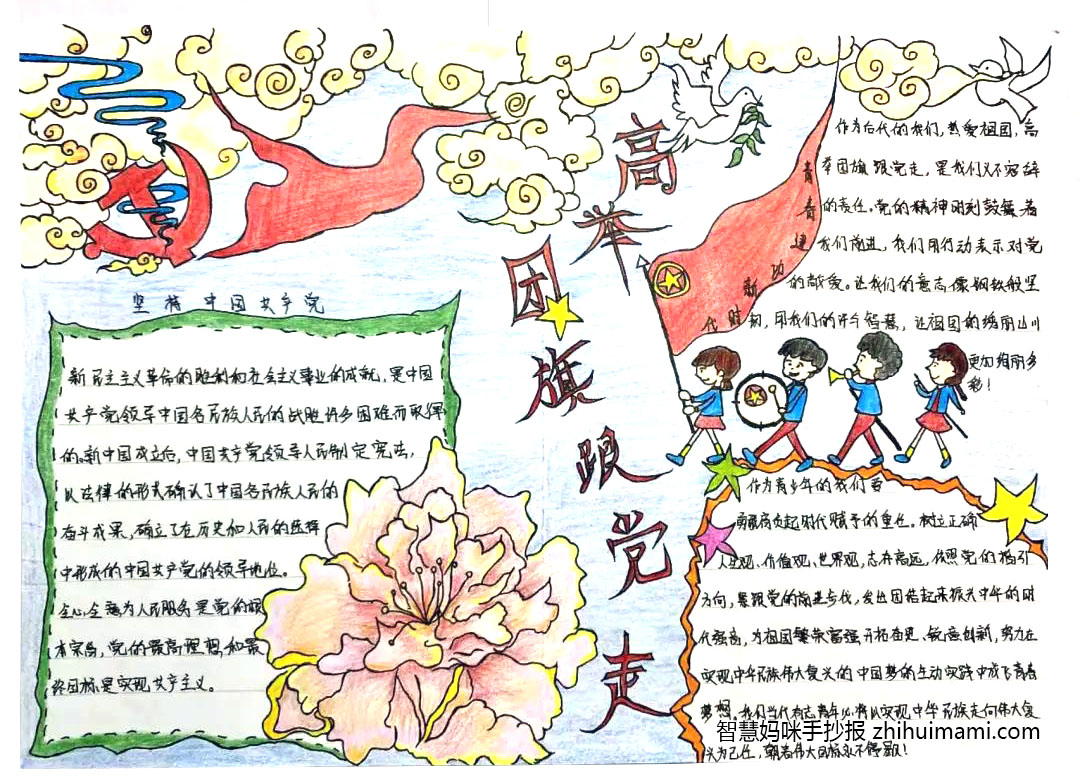 高举
团旗
跟党走
坚持中国共产党
新民主主义革命的胜利和社会主义事业的成就,是中国
共产党领导中国各民族人民的战胜许多困难而取得
的。新中国成立后,中国共产党领导人民制定宪法,
以法律的形式确认了中国各民族人民的
奋斗成果,确立了在历史和人民的选择
中形成的中国共产党的领导地位。
全心全意为人民服务是党的根
本宗旨,党的最高理想和最
终目标是实现共产主义。
青春建功新时代
作为后代的我们,热爱祖国,高
举团旗跟党走,是我们义不容辞
的责任。党的精神时刻鼓舞着
我们前进,我们用行动表示对党
的敬爱。让我们的意志像钢铁般坚
韧,用我们的 智慧,让祖国的绮丽山川
更加绚丽多
彩!
作为青少年的我们要
肩负起时代赋予的重任。树立正确
人生观、价值观、世界观,志存高远,依照党的指引
方向,紧跟党的前进步伐,发出团结起来振兴中华的时
代强音,为祖国繁荣富强,开拓奋进、锐意创新,努力在
实现中华民族伟大复兴的中国梦的生动实践中放飞青春
梦想。我们当代有志青年必将以实现中华民族走向伟大复
兴为己任,朝着伟大目标永不停歇!
智慧妈咪手抄报 zhihuimami.com